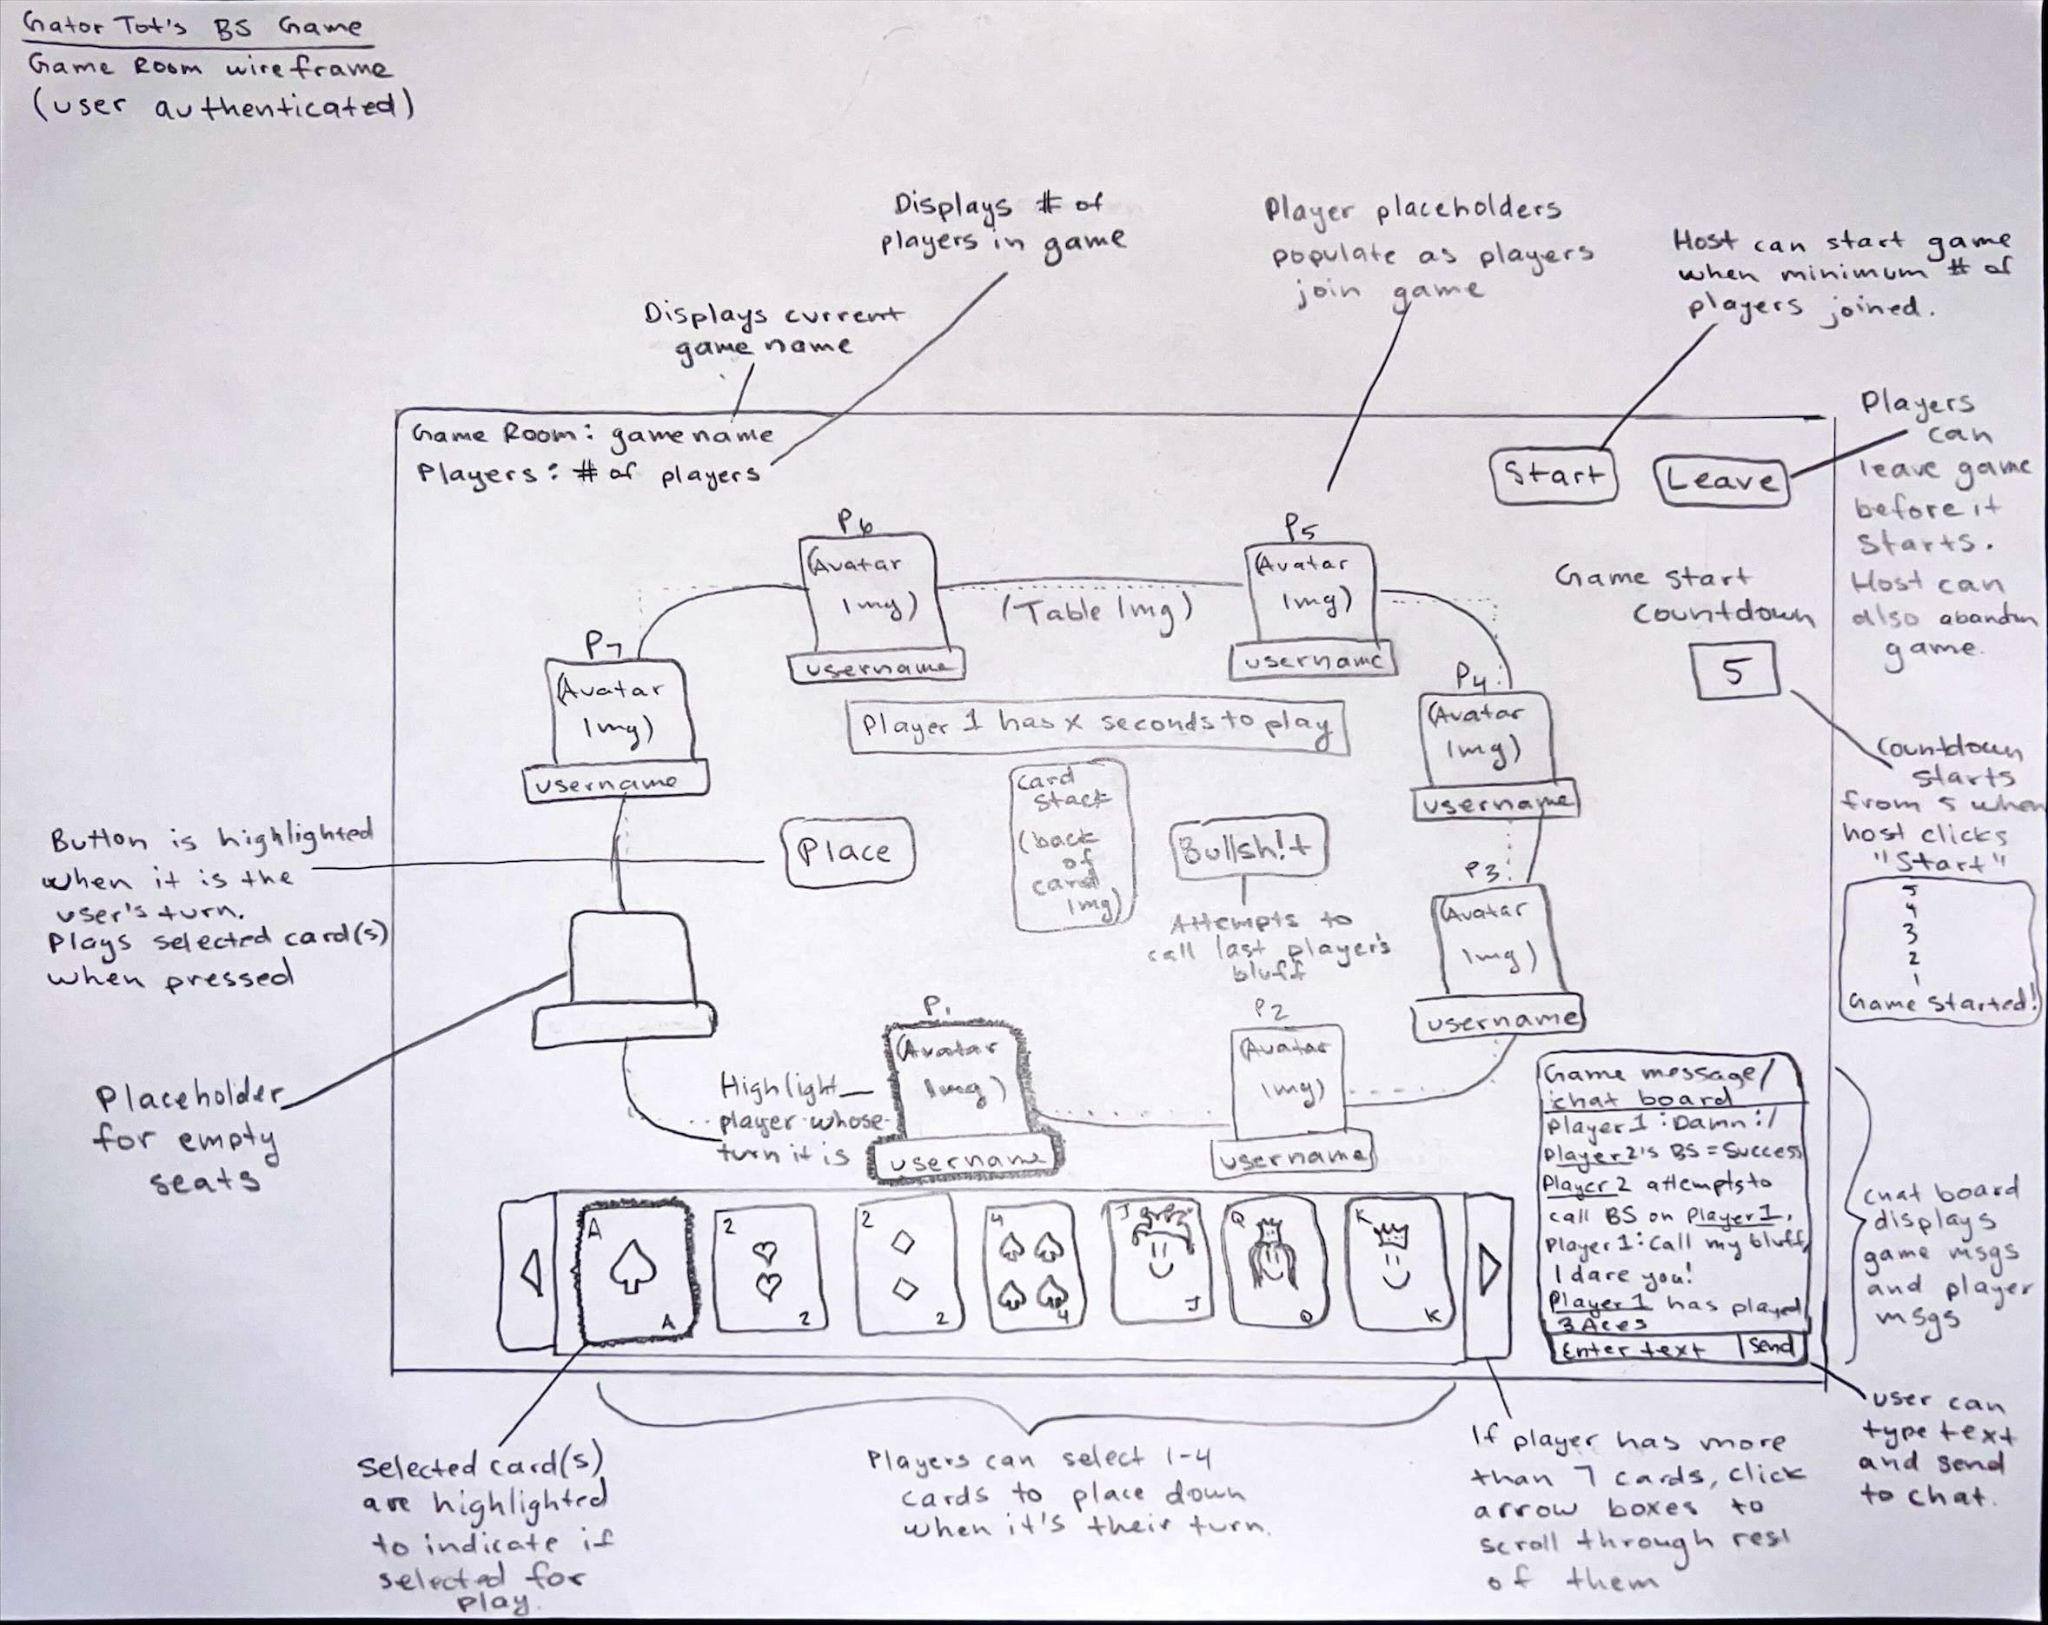 Gator Tot's BS Game
Game Room wireframe
(user authenticated)
Displays # of
players in game
Player placeholders
populate as players
join game
Host can start game
when minimum # of
players joined.
Displays current
game name
Players
can
leave game
before it
starts.
Host can
also abandon
game.
Game Room: gamename
Players: # of players
Start
Leave
P6
(Avatar
Img)
username
(Table Img)
P5
(Avatar
Img)
username
Game start
countdown
5
P7
(Avatar
Img)
username
P4
(Avatar
Img)
username
Player 1 has x seconds to play
Countdown
starts
from 5 when
host clicks
"Start"
5
4
3
2
1
Game started!
Button is highlighted
when it is the
user's turn.
Plays selected card(s)
when pressed
Place
Card
stack
(back
of
card
Img)
Bullsh!t
Attempts to
call last player's
bluff
P3
(Avatar
Img)
username
Placeholder
for empty
seats
Highlight
player whose
turn it is
P1
(Avatar
Img)
username
P2
(Avatar
Img)
username
Game message/
chat board
Player 1: Damn :/
Player 2's BS = Success
Player 2 attempts to
call BS on Player 1.
Player 1: Call my bluff,
I dare you!
Player 1 has played
3 Aces
Enter text
Send
chat board
displays
game msgs
and player
msgs
A
A
2
2
2
2
4
4
J
J
Q
Q
K
K
Selected card(s)
are highlighted
to indicate if
selected for
play.
Players can select 1-4
cards to place down
when it's their turn.
If player has more
than 7 cards, click
arrow boxes to
scroll through rest
of them
user can
type text
and send
to chat.